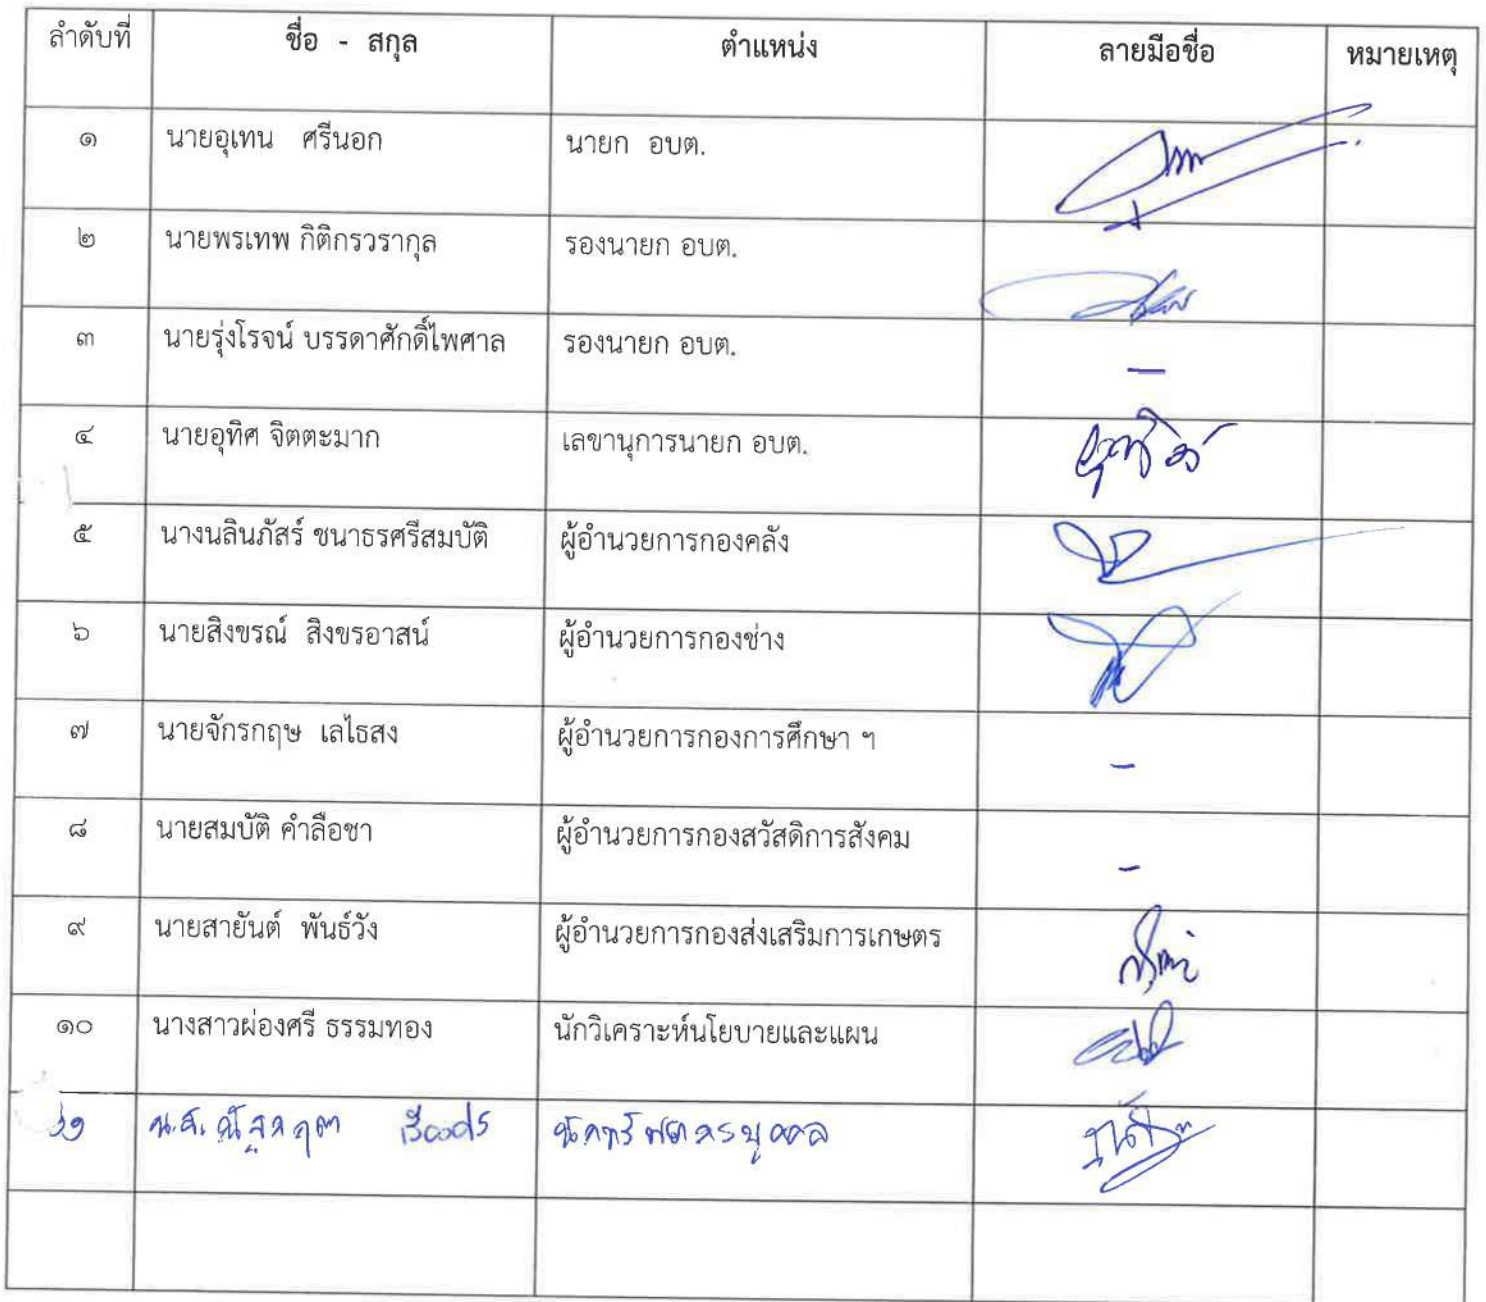 ลำดับที่ ชื่อ - สกุล ตำแหน่ง ลายมือชื่อ หมายเหตุ
๑ นายอุเทน ศรีนอก นายก อบต.
๒ นายพรเทพ กิติกรวรากุล รองนายก อบต.
๓ นายรุ่งโรจน์ บรรดาศักดิ์ไพศาล รองนายก อบต. —
๔ นายอุทิศ จิตตะมาก เลขานุการนายก อบต.
๕ นางนลินภัสร์ ชนาธรศรีสมบัติ ผู้อำนวยการกองคลัง
๖ นายสิงขรณ์ สิงขรอาสน์ ผู้อำนวยการกองช่าง
๗ นายจักรกฤษ เลไธสง ผู้อำนวยการกองการศึกษา ฯ -
๘ นายสมบัติ คำลือชา ผู้อำนวยการกองสวัสดิการสังคม -
๙ นายสายันต์ พันธ์วัง ผู้อำนวยการกองส่งเสริมการเกษตร
๑๐ นางสาวผ่องศรี ธรรมทอง นักวิเคราะห์นโยบายและแผน
๑๑ น.ส. นักทรัพยากรบุคคล